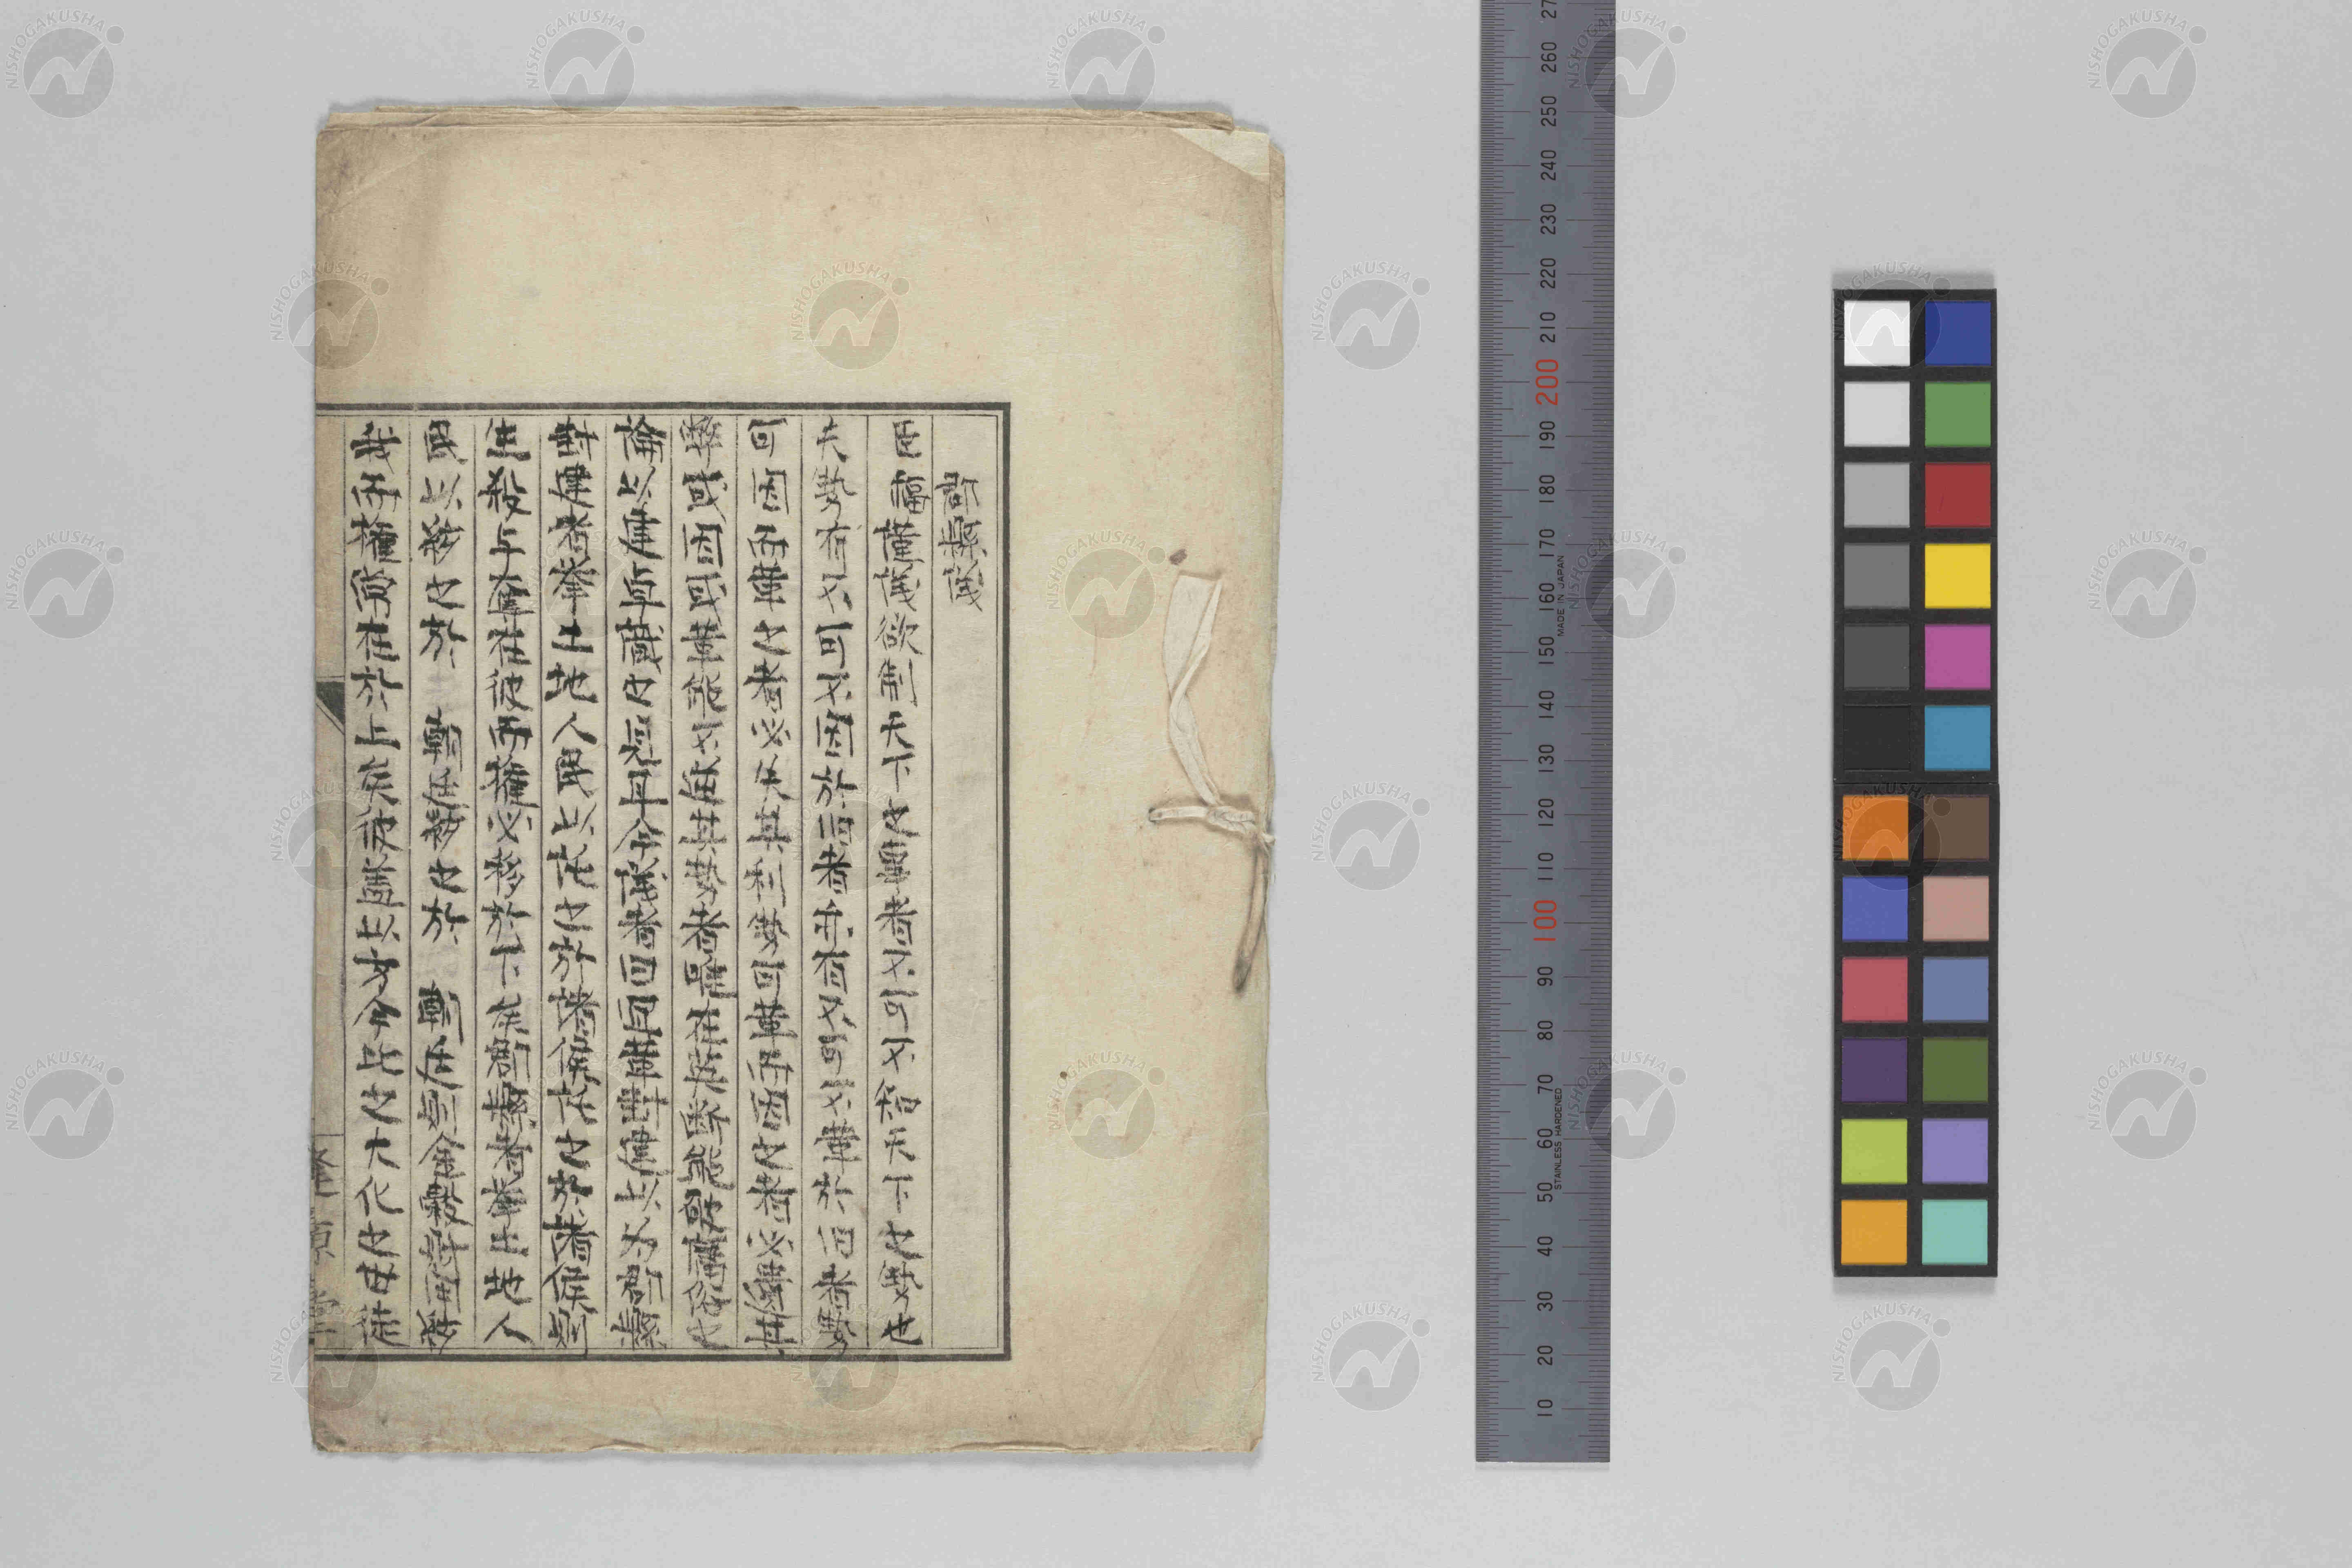 郡縣議
臣 謹議欲制天下之事者不可不知天下之勢也
夫勢有不可不因於舊者亦有不可不革於旧者勢
可因而革之者必失其利勢可革而因之者必其
弊或因或革能不失其勢者在英断能破舊俗之
論以建卓識之見耳今議者曰革封建以為郡縣
封建者挙土地人民以託之於諸侯託之於諸侯則
生殺与奪在彼而権必移於下矣郡縣者挙土地人
民以帰之於 朝廷帰之於 朝廷則金穀財用帰
我而権常在於上矣彼蓋以方今之大化之世徒
NISHOGAKUSHA
MADE IN JAPAN
STAINLESS HARDENED
270 260 250 240 230 220 210 200 190 180 170 160 150 140 130 120 110 100 90 80 70 60 50 40 30 20 10